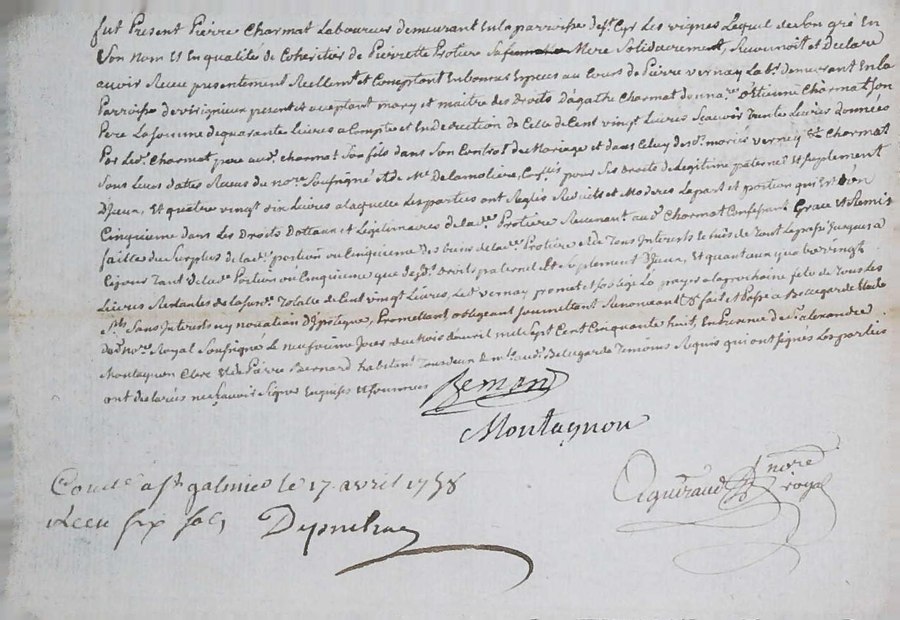 fut Present Pierre Charmat Laboureur demeurant En la parroisse de st Cyr Les vignes Lequel de son gré En
Son nom Et En qualité de Cohéritier de Pierrette Protiere Sa Mere Solidairement, Reconnoit et Declare
avoir Receu presentement Reellemt et Comptant En bonnes Especes au Cours de Pierre vernay Labr demeurant En la
Parroisse de present et aceptant mary et maitre des Droits d'agathe Charmat donnare d'Etienne Charmat Son
Pere La somme de quarante Livres a Compte et En deduction de Celle de Cent vingt Livres Scavoir trente Livres données
Par Led. Charmat pere aud. charmat Son fils dans Son Contrat de Mariage et dans Celuy desd. mariés verney & Charmat
Sous Leurs dates Receus du nore Soussigné et de Me Delamoliere, pour Ses Droits de Legitime paternel Et Suplement
D'yceux, Et quatre vingt dix Livres a laquelle Les parties ont Reglés et Moderés La part et portion qui Est d'un
Cinquieme dans Les Droits Dotaux et Legitimaires de lade Protiere Revenant aud. Charmat Confessant Grace Et Remise
faitte du Surplus de lade portion ou Cinquieme des biens de lade Protiere et de Tous Interets de tout Le passé Jusques a
Ce jour Tant de lade Portion ou Cinquieme que desd. Droits paternel Et Suplement D'yceux, Et quant aux quatre vingt
Livres Restantes de la somme Totalle de Cent vingt Livres, Led. vernay promet et s'oblige La payer a la prochaine fete de Tous Les
Sts Sans Interets ny novation d'ypoteque, Promettant, obligeant Soumettant Renonceant & fait et Passé a Bellegarde Etude
du nore Royal Soussigné Le neufvieme Jour du mois d'avril mil Sept Cent Cinquante huit, En Presence de Sr alexandre
Montagnon Clerc Et de Pierre Bernard habitant aud. Bellegarde Temoins Requis qui ont Signés Les parties
ont declarées ne Scavoir Signer Enquises Et Sommées
Bernard
Montagnon
Conte a st galmier le 17 avril 1758
Receu six sols
nore royal